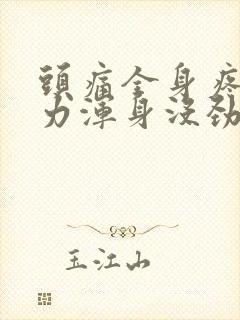 頭痛全身疼
力渾身沒勁
玉江山